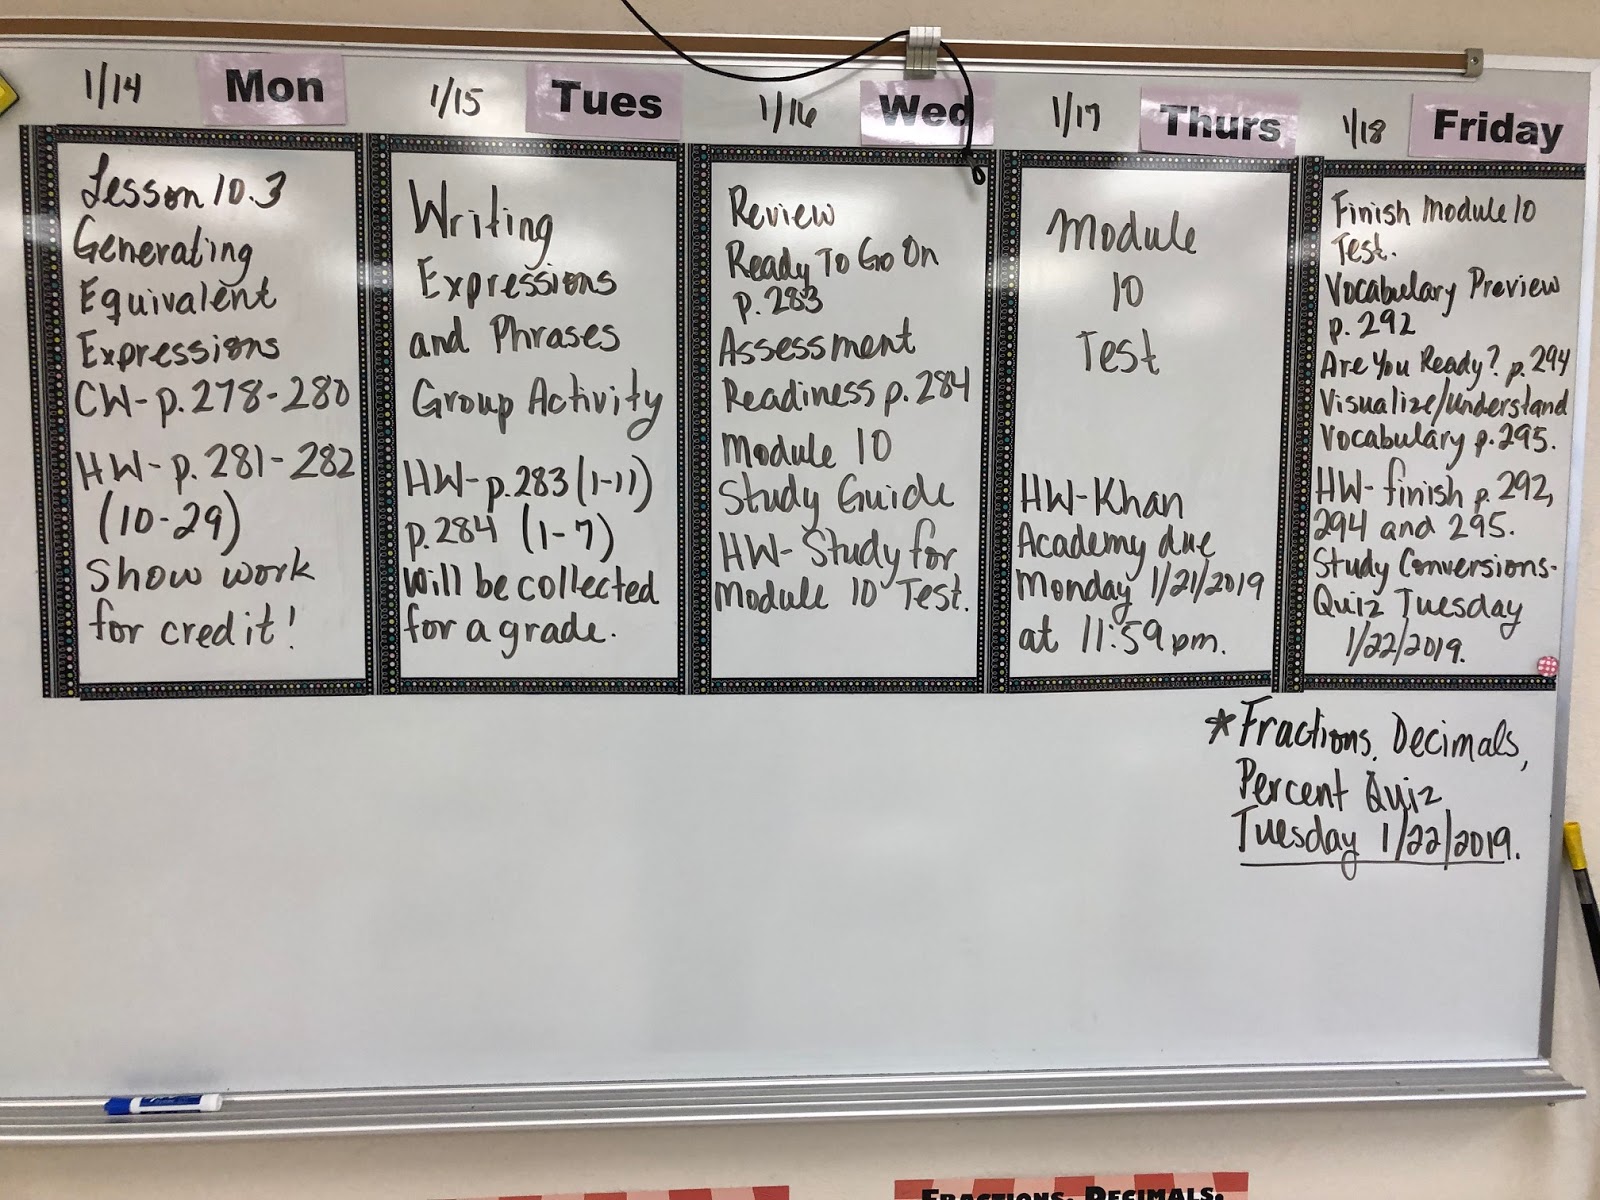 1/14 Mon
Lesson 10.3
Generating
Equivalent
Expressions
CW-p.278-280
HW-p.281-282
(10-29)
Show work
for credit!
1/15 Tues
Writing
Expressions
and Phrases
Group Activity
HW-p.283(1-11)
p.284 (1-7)
will be collected
for a grade.
1/16 Wed
Review
Ready To Go On
p.283
Assessment
Readiness p.284
Module 10
Study Guide
HW-Study for
Module 10 Test.
1/17 Thurs
Module
10
Test
HW-Khan
Academy due
Monday 1/21/2019
at 11:59pm.
1/18 Friday
Finish Module 10
Test.
Vocabulary Preview
p.292
Are You Ready? p.294
Visualize/Understand
Vocabulary p.295.
HW-finish p.292,
294 and 295.
Study Conversions-
Quiz Tuesday
1/22/2019.
*Fractions, Decimals,
Percent Quiz
Tuesday 1/22/2019.
FRACTIONS, DECIMALS,